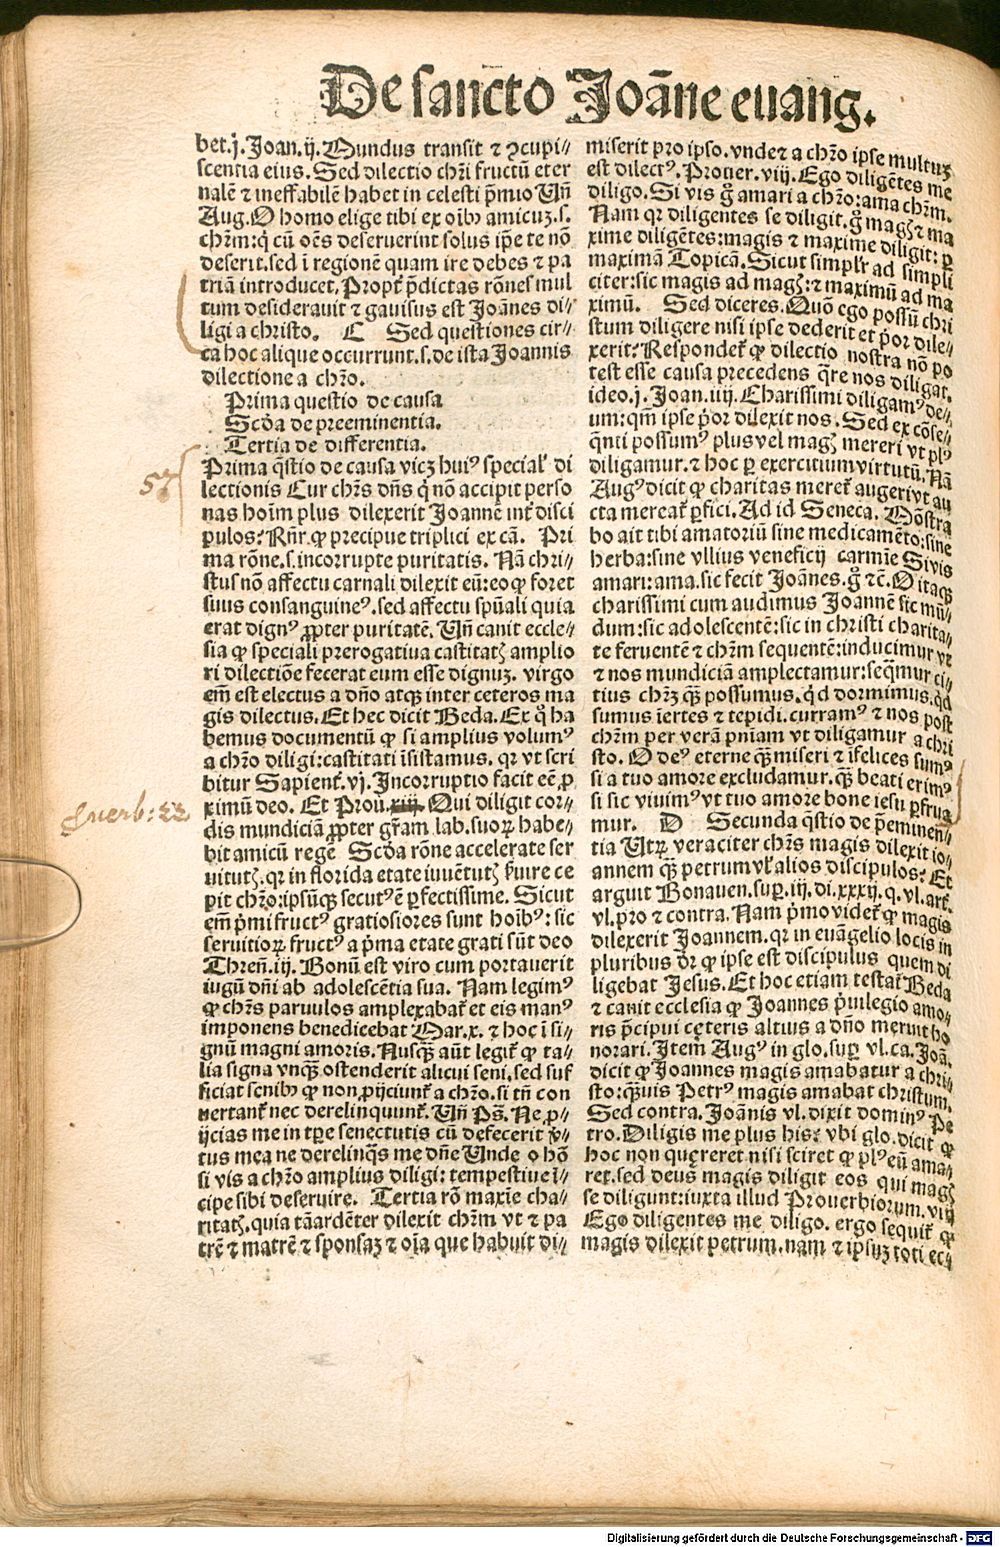 De sancto Joãne euang.
bet.j.Joan.ij.Mundus transit ⁊ ꝯcupi⸗
scentia eius. Sed dilectio chr̃i fructũ eter
nalẽ ⁊ ineffabilẽ habet in celesti p̃mio Uñ
Aug.O homo elige tibi ex oĩb⁹ amicuꝫ.s.
chr̃m:q̇ cũ oẽs deseruerint solus ip̃e te nõ
deserit.sed ĩ regionẽ quam ire debes ⁊ pa
triã introducet. Propt̃ p̃dictas rõnes mul
tum desiderauit ⁊ gauisus est Joãnes di⸗
ligi a christo. C Sed questiones cir⸗
ca hoc alique occurrunt.s.de ista Joannis
dilectione a chr̃o.
Prima questio de causa
Scḋa de preeminentia.
Tertia de differentia.
57
Prima q̃stio de causa vicꝫ hui⁹ special̃ di
lectionis Cur chr̃s dñs q̇ nõ accipit perso
nas hoĩm plus dilexerit Joannẽ int̃ disci
pulos? Rñr.ꝙ precipue triplici ex cã. Pri
ma rõne.s.incorrupte puritatis. Nã chri⸗
stus nõ affectu carnali dilexit eũ:eo ꝙ foret
suus consanguine⁹.sed affectu spũali quia
erat dign⁹ ꝓpter puritatẽ. Uñ canit eccle⸗
sia ꝙ speciali prerogatiua castitatꝭ amplio
ri dilectiõe fecerat eum esse dignuꝫ. virgo
em̃ est electus a dño atqꝫ inter ceteros ma
gis dilectus. Et hec dicit Beda. Ex q̊ ha
bemus documentũ ꝙ si amplius volum⁹
a chr̃o diligi:castitati ĩsistamus. qr vt scri
bitur Sapient̃.vj. Incorruptio facit eẽ ꝓ
ꝓuerb: 22
ximũ deo. Et Prou.xiij. Qui diligit cor⸗
dis mundiciã ꝓpter gr̃am lab.suoꝝ habe⸗
bit amicũ regẽ Scḋa rõne accelerate ser
uitutꝭ.qr in florida etate iuuẽtutꝭ ẜuire ce
pit chr̃o:ipsũqꝫ secut⁹ ẽ ꝑfectissime. Sicut
em̃ p̃mi fruct⁹ gratiosiores sunt hoĩb⁹: sic
seruitioꝝ fruct⁹ a p̃ma etate grati sũt deo
Threñ.iij. Bonũ est viro cum portauerit
iugũ dñi ab adolescẽtia sua. Nam legim⁹
ꝙ chr̃s paruulos amplexabat̃ et eis man⁹
imponens benedicebat Mar.x. ⁊ hoc ĩ si⸗
gnũ magni amoris. Nusꝙ̃ aũt legit̃ ꝙ ta⸗
lia signa vnꝙ̃ ostenderit alicui seni.sed suf
ficiat senib⁹ ꝙ non ꝓijciunt̃ a chr̃o.si tñ con
uertant̃ nec derelinquunt̃. Uñ Ps̃. Ne ꝓ⸗
ijcias me in tp̃e senectutis cũ defecerit ṽ⸗
tus mea ne derelinq̃s me dñe Unde o hõ
si vis a chr̃o amplius diligi: tempestiue ĩ⸗
cipe sibi deseruire. Tertia rõ maxĩe cha⸗
ritatꝭ.quia tã ardẽter dilexit chr̃m vt ⁊ pa
trẽ ⁊ matrẽ ⁊ sponsaꝫ ⁊ oĩa que habuit di⸗
miserit pro ipso.vnde ⁊ a chr̃o ipse multuꝫ
est dilect⁹. Prouer.viij. Ego diligẽtes me
diligo. Si vis g̃ amari a chr̃o:ama chr̃m.
Nam qr diligentes se diligit.g̃ magꝭ ⁊ ma
xime diligẽtes:magis ⁊ maxime diligit: ꝑ
maximã Topicã. Sicut simplr̃ ad simpli
citer:sic magis ad magꝭ: ⁊ maximũ ad ma
ximũ. Sed diceres. Quõ ego possũ chri
stum diligere nisi ipse dederit et p̃or dile⸗
xerit? Respondet̃ ꝙ dilectio nostra nõ po
test esse causa precedens q̃re nos diligat.
ideo.j. Joan.iiij. Charissimi diligam⁹ de⸗
um:qm̃ ipse p̃or dilexit nos. Sed ex cõse⸗
q̃nti possum⁹ plus vel magꝭ mereri vt pl⁹
diligamur. ⁊ hoc ꝑ exercitium virtutũ. Nã
Aug⁹ dicit ꝙ charitas meret̃ augeri vt au
cta mereat̃ ꝑfici. Ad id Seneca. Mõstra
bo ait tibi amatoriũ sine medicamẽto:sine
herba:sine vllius veneficij carmĩe Si vis
amari:ama.sic fecit Joãnes.g̃ ⁊c̃. O itaqꝫ
charissimi cum audimus Joannẽ sic mũ⸗
dum:sic adolescentẽ:sic in christi charita⸗
te feruentẽ ⁊ chr̃m sequentẽ:inducimur vt
⁊ nos mundiciã amplectamur:seq̃mur ci⸗
tius chr̃ꝫ ꝙ̃ possumus.q̇d dormimus.q̇d
sumus iertes ⁊ tepidi.curram⁹ ⁊ nos post
chr̃m per verã pñiam vt diligamur a chri
sto. O de⁹ eterne ꝙ̃ miseri ⁊ ĩfelices sum⁹
si a tuo amore excludamur.ꝙ̃ beati erim⁹
si sic viuim⁹ vt tuo amore bone iesu ꝑfrua
mur. D Secunda q̃stio de p̃eminen⸗
tia Utꝝ veraciter chr̃s magis dilexit io⸗
annem ꝙ̃ petrum vl̃ alios discipulos? Et
arguit Bonauen.suꝑ.iij.di.xxxij.q.vl.art̃.
vl.pro ⁊ contra. Nam p̃mo videt̃ ꝙ magis
dilexerit Joannem.qr in euãgelio locis in
pluribus dr̃ ꝙ ipse est discipulus quem di
ligebat Jesus. Et hoc etiam testat̃ Beda
⁊ canit ecclesia ꝙ Joannes p̃uilegio amo⸗
ris p̃cipui ceteris altius a dño meruit ho
norari. Item̃ Aug⁹ in glo.suꝑ vl.ca. Joã.
dicit ꝙ Joannes magis amabatur a chri⸗
sto:ꝙ̃uis Petr⁹ magis amabat christum.
Sed contra. Joãnis vl. dixit domin⁹ Pe
tro. Diligis me plus his? vbi glo.dicit ꝙ
hoc non quereret nisi sciret ꝙ pl⁹ eũ ama⸗
ret.sed deus magis diligit eos qui magꝭ
se diligunt:iuxta illud Prouerbiorum.viij
Ego diligentes me diligo. ergo sequit̃ ꝙ
magis dilexit petrum.nam ⁊ ip̃suꝫ toti ecc̃
Digitalisierung gefördert durch die Deutsche Forschungsgemeinschaft - DFG